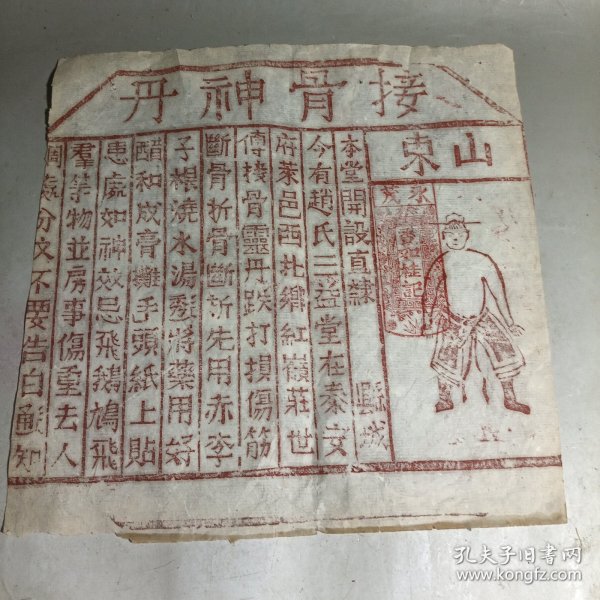 接骨神丹
山東
本堂開設直隸 縣城
今有趙氏三益堂在泰安
府萊邑西北鄉紅嶺莊世
傳接骨靈丹跌打損傷筋
斷骨折骨斷折先用赤李
子根澆水湯髮將藥用好
醋和成膏攤手頭紙上貼
患處如神效忌飛鵝鳩飛
羣等物並房事傷重去人
調處分文不要告白通知
孔夫子旧书网
www.kongfz.com